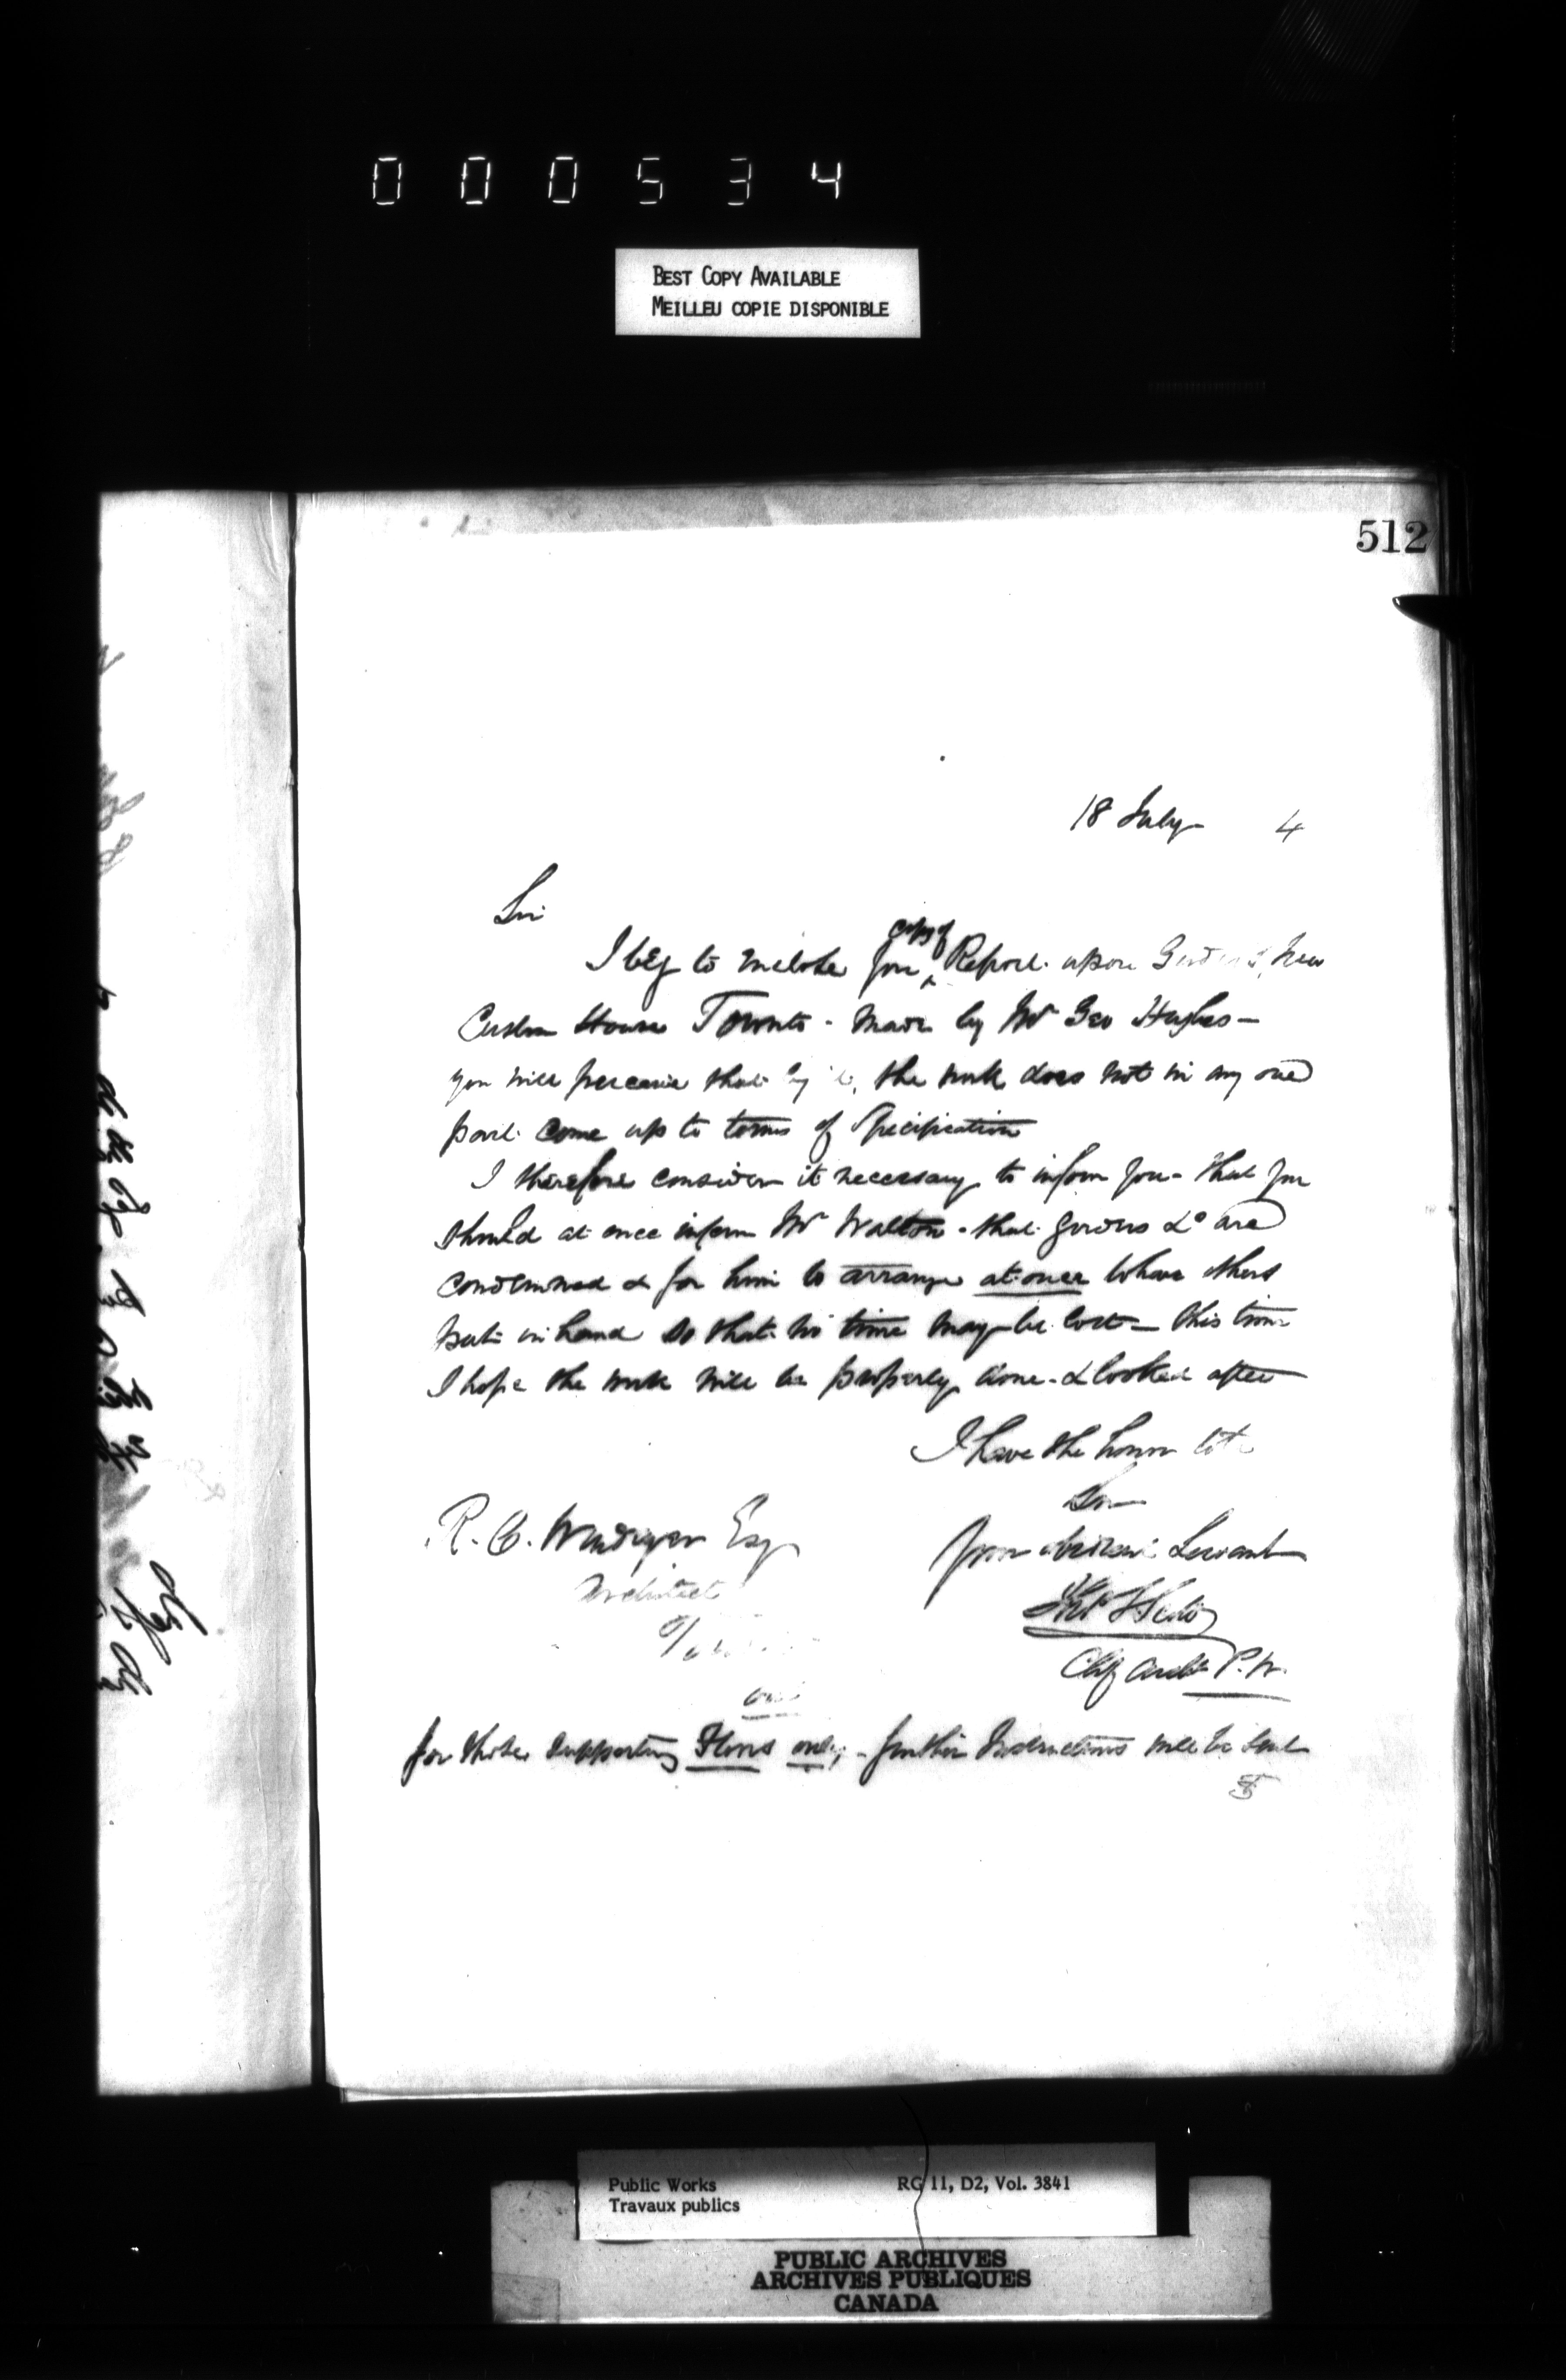 000534
BEST COPY AVAILABLE
MEILLEU COPIE DISPONIBLE
512
18 July 4
Sir
I beg to enclose you copy of Report upon Girders, New
Custom House Toronto - made by Mr Geo Hughes -
you will perceive that by it, the work does not in any one
part come up to terms of Specification
I therefore consider it necessary to inform you - that you
should at once inform Mr Walton - that girders &c are
condemned & for him to arrange at once to have others
put in hand so that no time may be lost - this time
I hope the work will be properly done - & looked after
I have the honor to be
Sir
Your obedient Servant
Chf Archt P.W.
R. C. Windeyer Esq
Architect
Toronto
for those supporting Floors only, - further Instructions will be sent
Public Works RG 11, D2, Vol. 3841
Travaux publics
PUBLIC ARCHIVES
ARCHIVES PUBLIQUES
CANADA